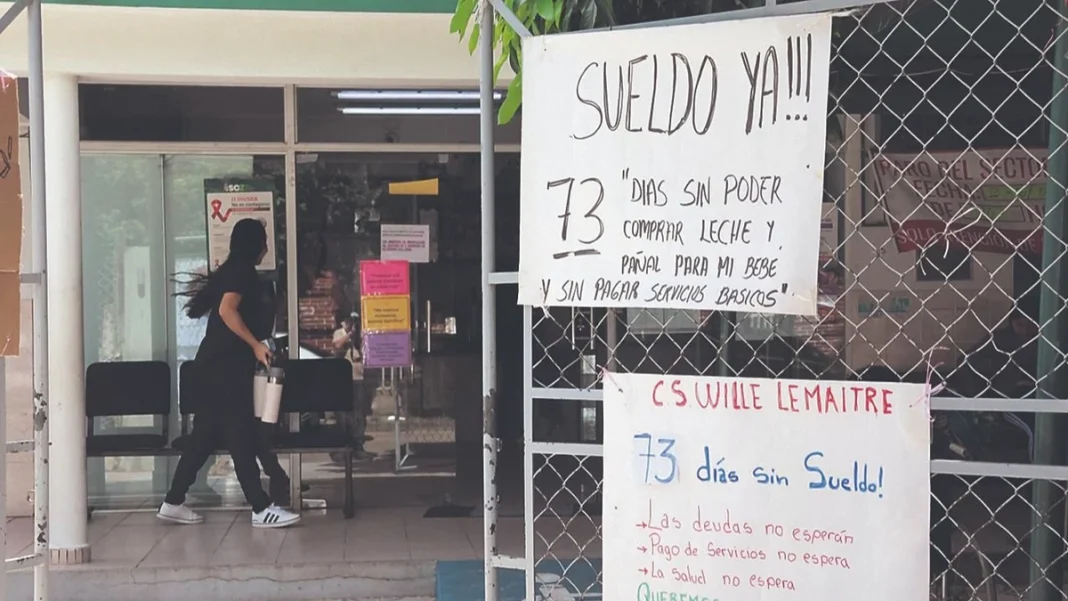 SUELDO YA!!!
73 "DIAS SIN PODER
COMPRAR LECHE Y
PAÑAL PARA MI BEBE
Y SIN PAGAR SERVICIOS BASICOS"
C.S. WILLE LEMAITRE
73 días sin Sueldo!
→Las deudas no esperán
→Pago de Servicios no espera
→La salud no espera
QUEREMOS
PARO DEL SECTOR